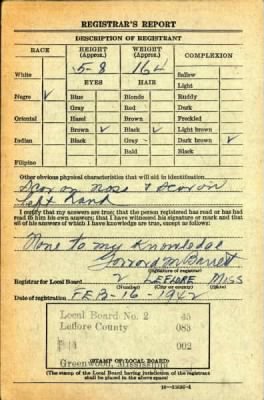 REGISTRAR'S REPORT
DESCRIPTION OF REGISTRANT
RACE
HEIGHT (Approx.)
WEIGHT (Approx.)
COMPLEXION
5-8
164
White
EYES
HAIR
Sallow
Light
Negro ✓
Blue
Blonde
Ruddy
Gray
Red
Dark
Oriental
Hazel
Brown
Freckled
Brown ✓
Black ✓
Light brown
Indian
Black
Gray
Dark brown ✓
Bald
Black
Filipino
Other obvious physical characteristics that will aid in identification
Scar on Nose & Scar on
Left Hand
I certify that my answers are true; that the person registered has read or has had
read to him his own answers; that I have witnessed his signature or mark and that
all of his answers of which I have knowledge are true, except as follows:
None to my Knowledge
M Barrett
(Signature of registrar)
Registrar for Local Board 2 LEFLORE MISS
(Number) (City or county) (State)
Date of registration FEB-16-1942
Local Board No. 2 45
Leflore County 083
002
Greenwood, Mississippi
(STAMP OF LOCAL BOARD)
(The stamp of the Local Board having jurisdiction of the registrant
shall be placed in the above space.)